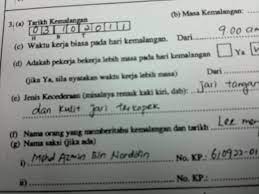 3. (a) Tarikh Kemalangan (b) Masa Kemalangan:
03102011
H B
(c) Waktu kerja biasa pada hari kemalangan. Dari 9.00 am
(d) Adakah pekerja bekerja lebih masa pada hari kemalangan Ya
(jika Ya, sila nyatakan waktu kerja lebih masa) Dari
(e) Jenis Kecederaan (misalnya remuk kaki kiri, dab): jari tangan
dan kulit jari terkopek
(f) Nama orang yang memberitahu kemalangan dan tarikh Lee
(g) Nama saksi (jika ada)
i) Mohd Azmin Bin Nordidin No. KP.: 610922-01
ii) No. KP.: